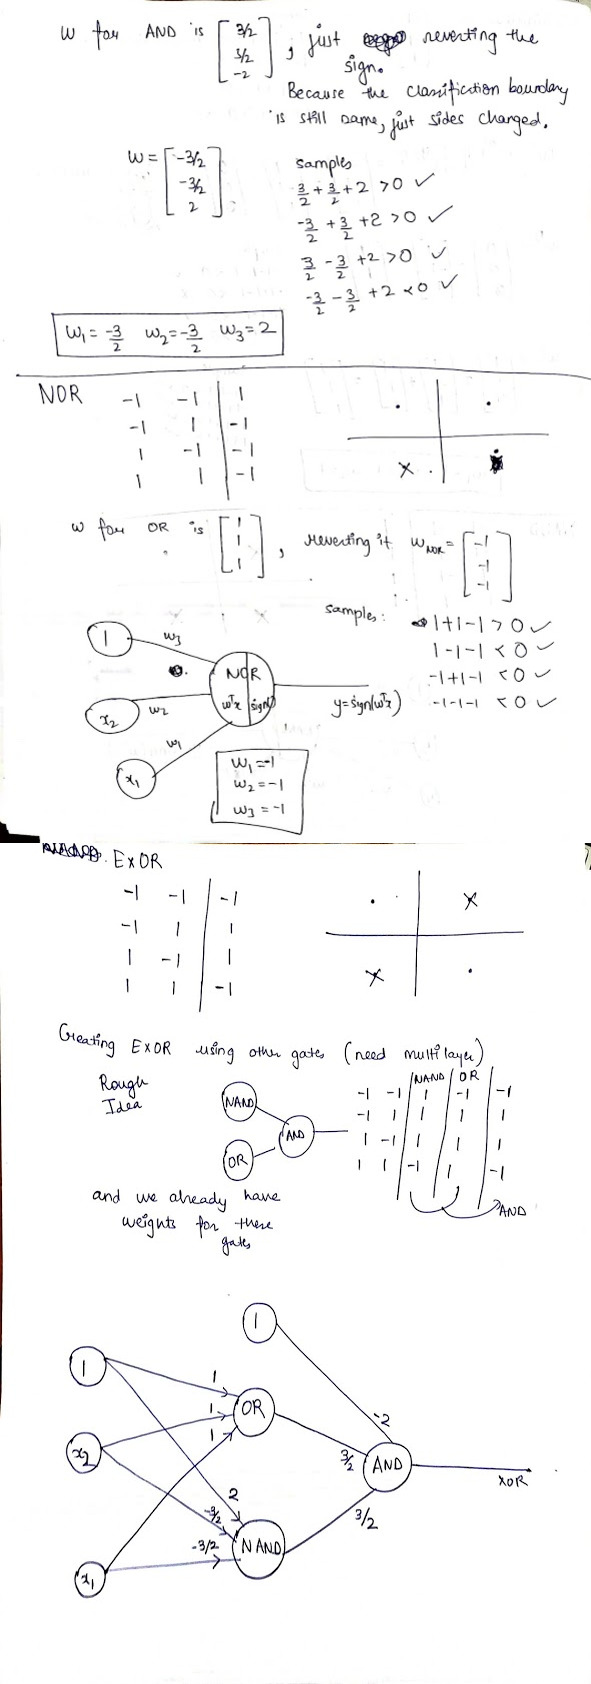 w for AND is [3/2 3/2 -2], just reverting the
sign.
Because the classification boundary
is still same, just sides changed.
W = [-3/2 -3/2 2]
samples
3/2 + 3/2 + 2 > 0 ✓
-3/2 + 3/2 + 2 > 0 ✓
3/2 - 3/2 + 2 > 0 ✓
-3/2 - 3/2 + 2 < 0 ✓
W₁ = -3/2 W₂ = -3/2 W₃ = 2
NOR
-1 -1 | 1
-1 1 | -1
1 -1 | -1
1 1 | -1
w for OR is [1 1 1], reverting it W_NOR = [-1 -1 -1]
samples: 1+1-1 > 0 ✓
1-1-1 < 0 ✓
-1+1-1 < 0 ✓
-1-1-1 < 0 ✓
1 w₃
NOR
x₂ w₂ wᵀx sign() y = sign(wᵀx)
x₁ w₁
W₁ = -1
W₂ = -1
W₃ = -1
ExOR
-1 -1 | -1
-1 1 | 1
1 -1 | 1
1 1 | -1
Creating ExOR using other gates (need multilayer)
Rough
Idea
NAND
OR
AND
NAND OR
-1 -1 1 -1 -1
-1 1 1 1 1
1 -1 1 1 1
1 1 -1 1 -1
AND
and we already have
weights for these
gates
1
1
x₂
x₁
1
1
1
OR
2
-3/2
-3/2
NAND
-2
3/2
3/2
AND
XOR